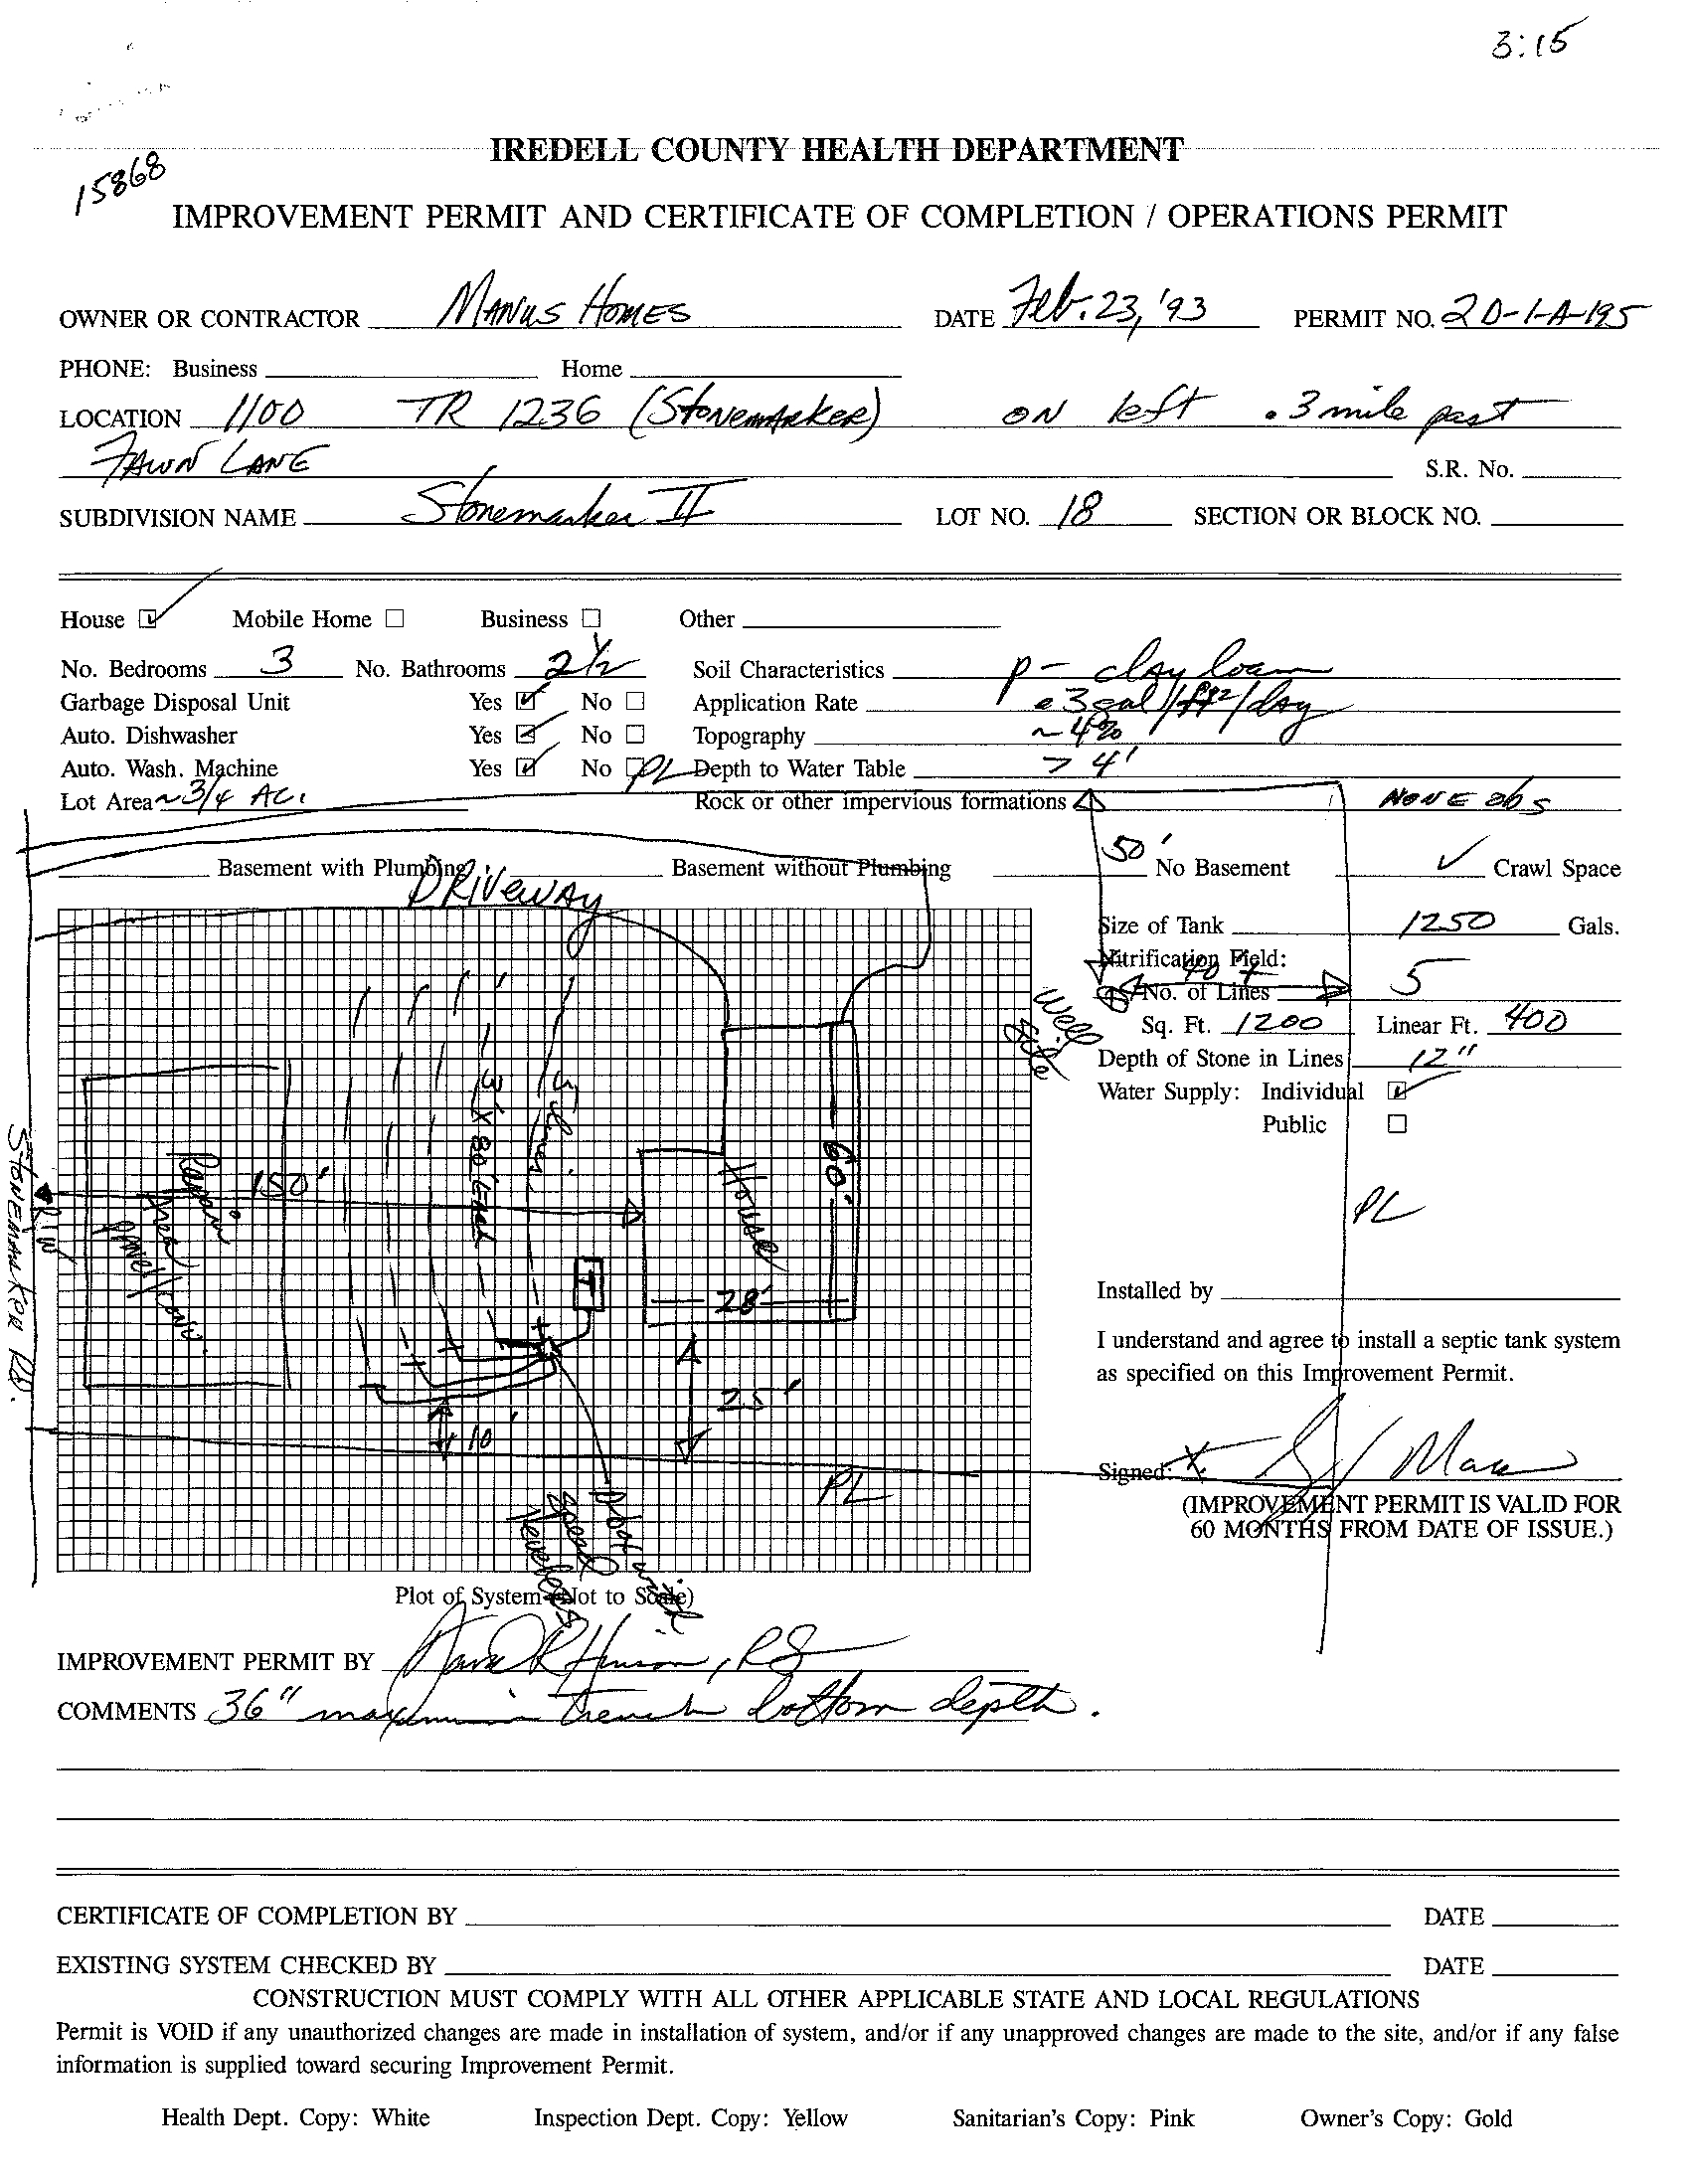 3:15
15868
IREDELL COUNTY HEALTH DEPARTMENT
IMPROVEMENT PERMIT AND CERTIFICATE OF COMPLETION / OPERATIONS PERMIT
OWNER OR CONTRACTOR MANUS HOMES DATE Feb. 23, '93 PERMIT NO. 2D-1-A-195
PHONE: Business Home
LOCATION 1100 TR 1236 (Stonemarker) ON left .3 mile past
FAWN LANE S.R. No.
SUBDIVISION NAME Stonemarker II LOT NO. 18 SECTION OR BLOCK NO.
House ☑ Mobile Home ☐ Business ☐ Other
No. Bedrooms 3 No. Bathrooms 2 1/2 Soil Characteristics p- clay loam
Garbage Disposal Unit Yes ☑ No ☐ Application Rate .3 gal/ft2/day
Auto. Dishwasher Yes ☑ No ☐ Topography ~ 4%
Auto. Wash. Machine Yes ☑ No ☐ PL Depth to Water Table > 4'
Lot Area ~ 3/4 AC. Rock or other impervious formations NONE obs
50'
Basement with Plumbing Basement without Plumbing No Basement ✓ Crawl Space
DRIVEWAY
Size of Tank 1250 Gals.
Nitrification Field:
40'
No. of Lines 5
Sq. Ft. 1200 Linear Ft. 400
Depth of Stone in Lines 12"
Water Supply: Individual ☑
Public ☐
Well Site
5 lines
3' X 80' Each
60'
House
Repair Area
150'
R/W
STONEMARKER RD.
T
28'
25'
10'
PL
PL
Installed by
I understand and agree to install a septic tank system
as specified on this Improvement Permit.
Signed: X
(IMPROVEMENT PERMIT IS VALID FOR
60 MONTHS FROM DATE OF ISSUE.)
D box with
speed
levelers
Plot of System (Not to Scale)
IMPROVEMENT PERMIT BY David R Hinson, RS
COMMENTS 36" maximum trench bottom depth.
CERTIFICATE OF COMPLETION BY DATE
EXISTING SYSTEM CHECKED BY DATE
CONSTRUCTION MUST COMPLY WITH ALL OTHER APPLICABLE STATE AND LOCAL REGULATIONS
Permit is VOID if any unauthorized changes are made in installation of system, and/or if any unapproved changes are made to the site, and/or if any false
information is supplied toward securing Improvement Permit.
Health Dept. Copy: White Inspection Dept. Copy: Yellow Sanitarian's Copy: Pink Owner's Copy: Gold